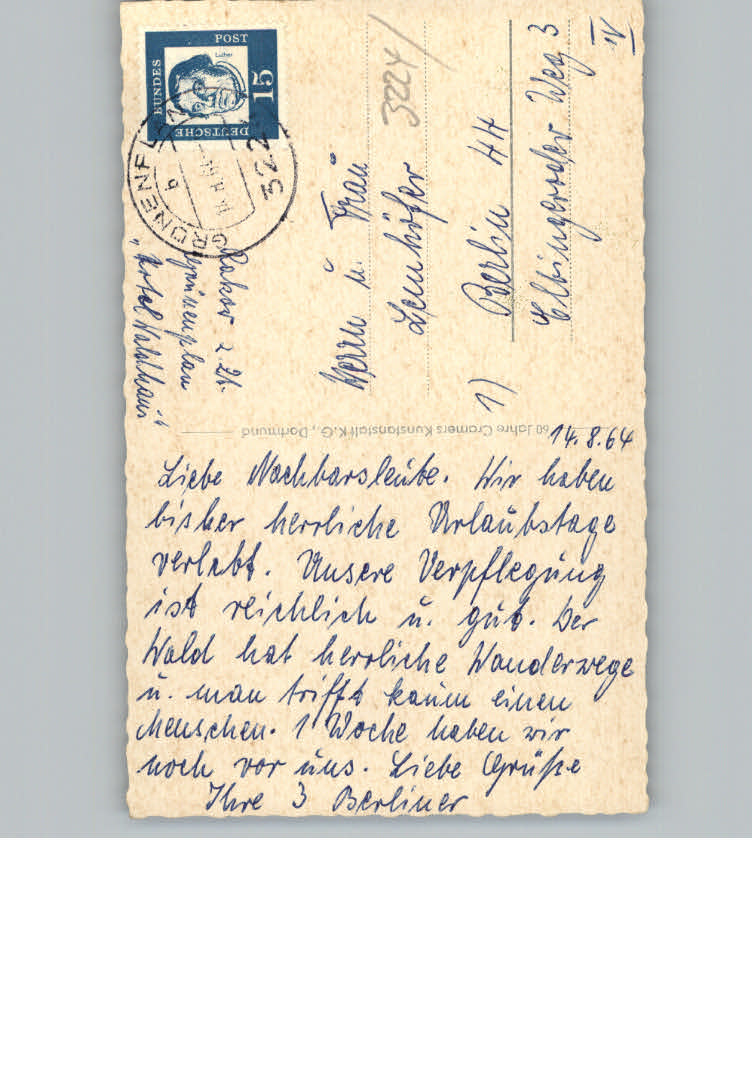 14.8.64
Liebe Nachbarsleute. Wir haben
bisher herrliche Urlaubstage
verlebt. Unsere Verpflegung
ist reichlich u. gut. Der
Wald hat herrliche Wanderwege
u. man trifft kaum einen
Menschen. 1 Woche haben wir
noch vor uns. Liebe Grüße
Ihre 3 Berliner
z. Zt.
Grünenplan
"Hotel Waldhaus"
DEUTSCHE BUNDESPOST
15
Luther
GRÜNENPL
b
322
3224
Herrn u. Frau
Lemhöfer
1) Berlin 44
Elbingeroder Weg 3
IV
60 Jahre Cramers Kunstanstalt K.G., Dortmund